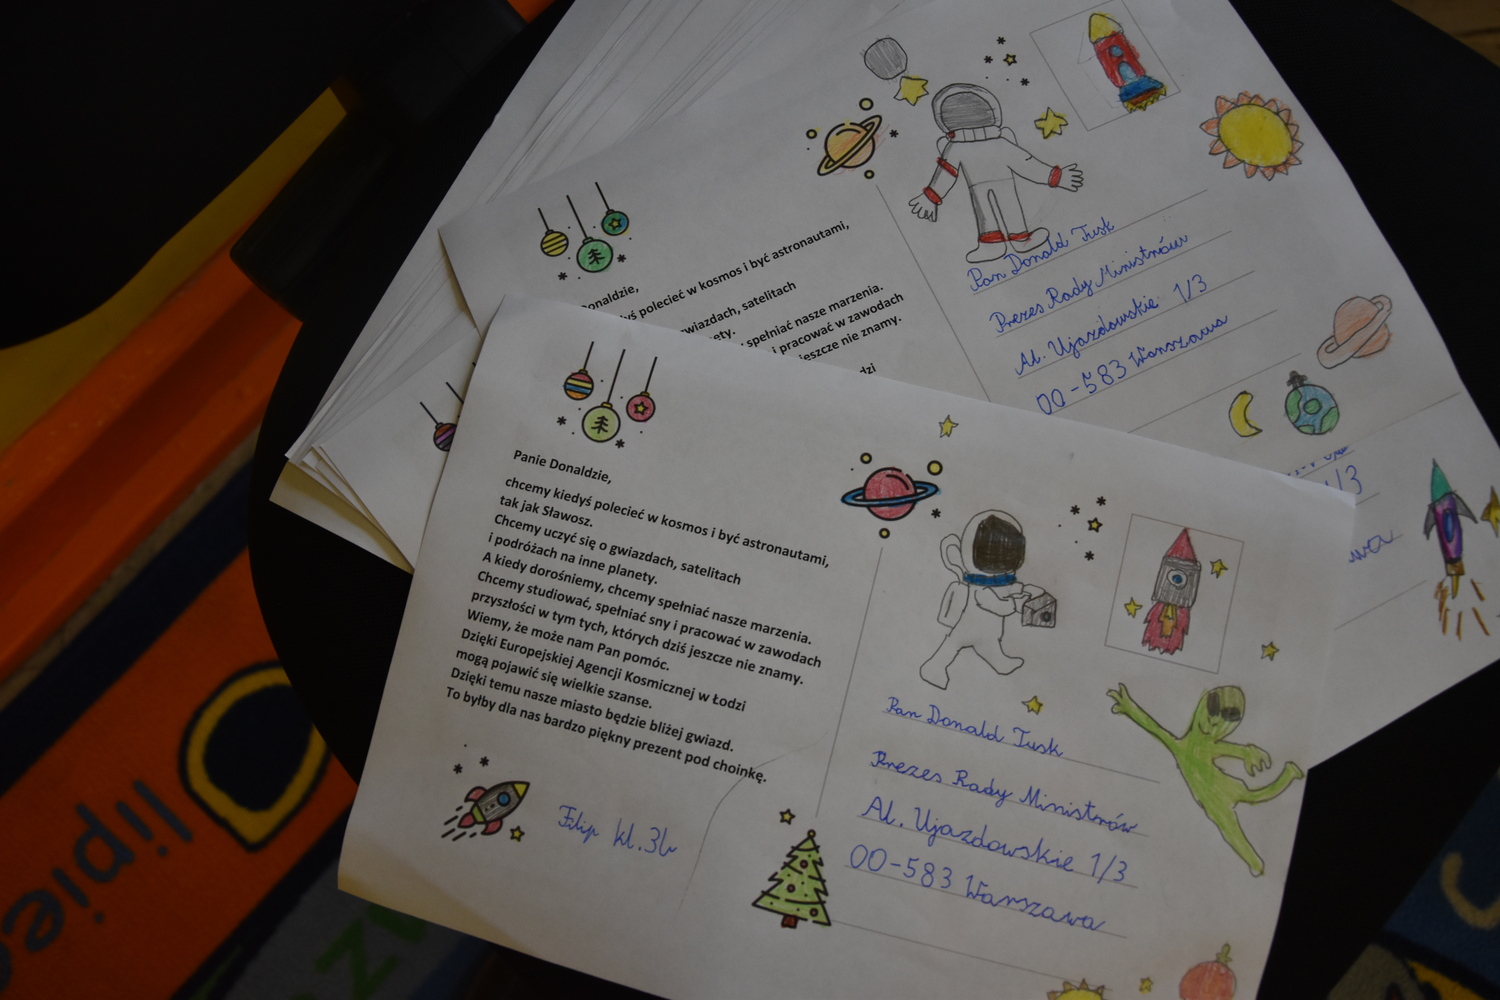 Panie Donaldzie,
chcemy kiedyś polecieć w kosmos i być astronautami,
tak jak Sławosz.
Chcemy uczyć się o gwiazdach, satelitach
i podróżach na inne planety.
A kiedy dorośniemy, chcemy spełniać nasze marzenia.
Chcemy studiować, spełniać sny i pracować w zawodach
przyszłości w tym tych, których dziś jeszcze nie znamy.
Wiemy, że może nam Pan pomóc.
Dzięki Europejskiej Agencji Kosmicznej w Łodzi
mogą pojawić się wielkie szanse.
Dzięki temu nasze miasto będzie bliżej gwiazd.
To byłby dla nas bardzo piękny prezent pod choinkę.
Filip kl.3b
Pan Donald Tusk
Prezes Rady Ministrów
Al. Ujazdowskie 1/3
00-583 Warszawa
polecieć w kosmos i być astronautami,
gwiazdach, satelitach
spełniać nasze marzenia.
i pracować w zawodach
jeszcze nie znamy.
Pan Donald Tusk
Prezes Rady Ministrów
Al. Ujazdowskie 1/3
00-583 Warszawa
1/3
lipiec